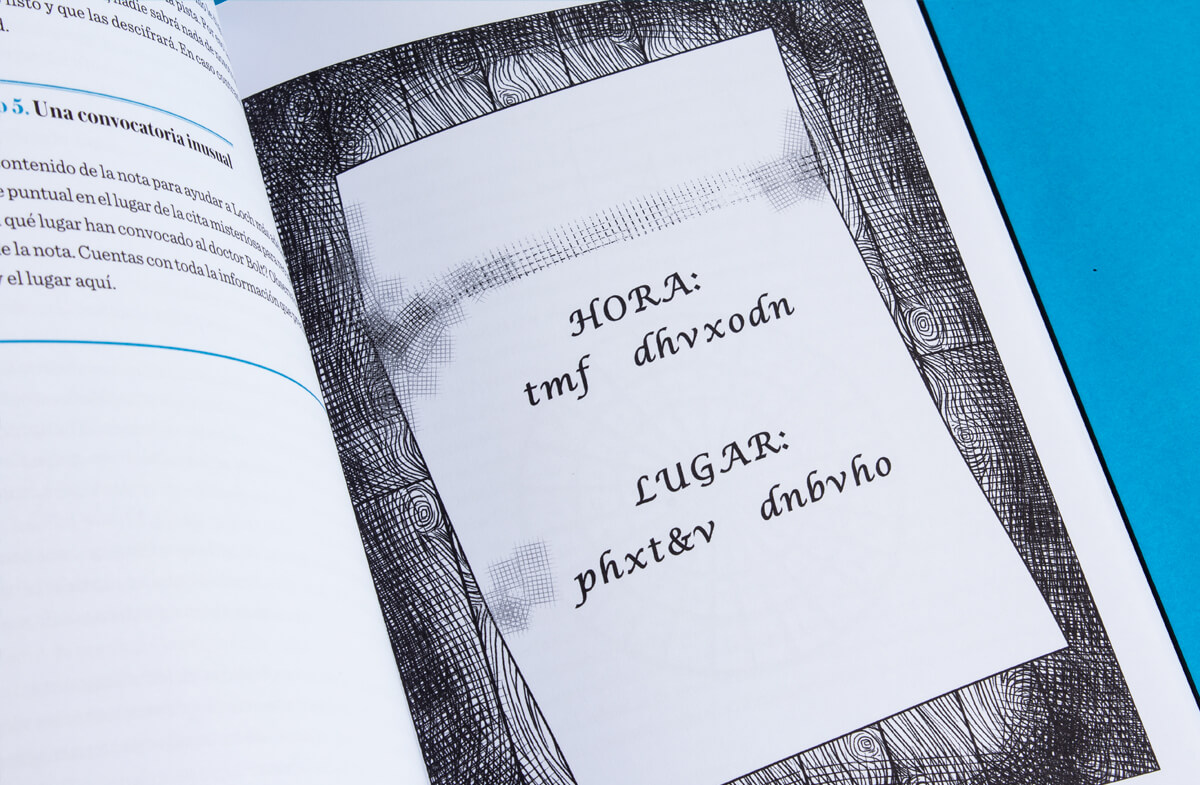 nadie sabrá nada de
listo y que las descifrará. En caso
d.
o 5. Una convocatoria inusual
contenido de la nota para ayudar a Loch
e puntual en el lugar de la cita misteriosa para
qué lugar han convocado al doctor Bolt?
de la nota. Cuentas con toda la información que
y el lugar aquí.
HORA:
tmf dhvxodn
LUGAR:
phxt&v dnbvho